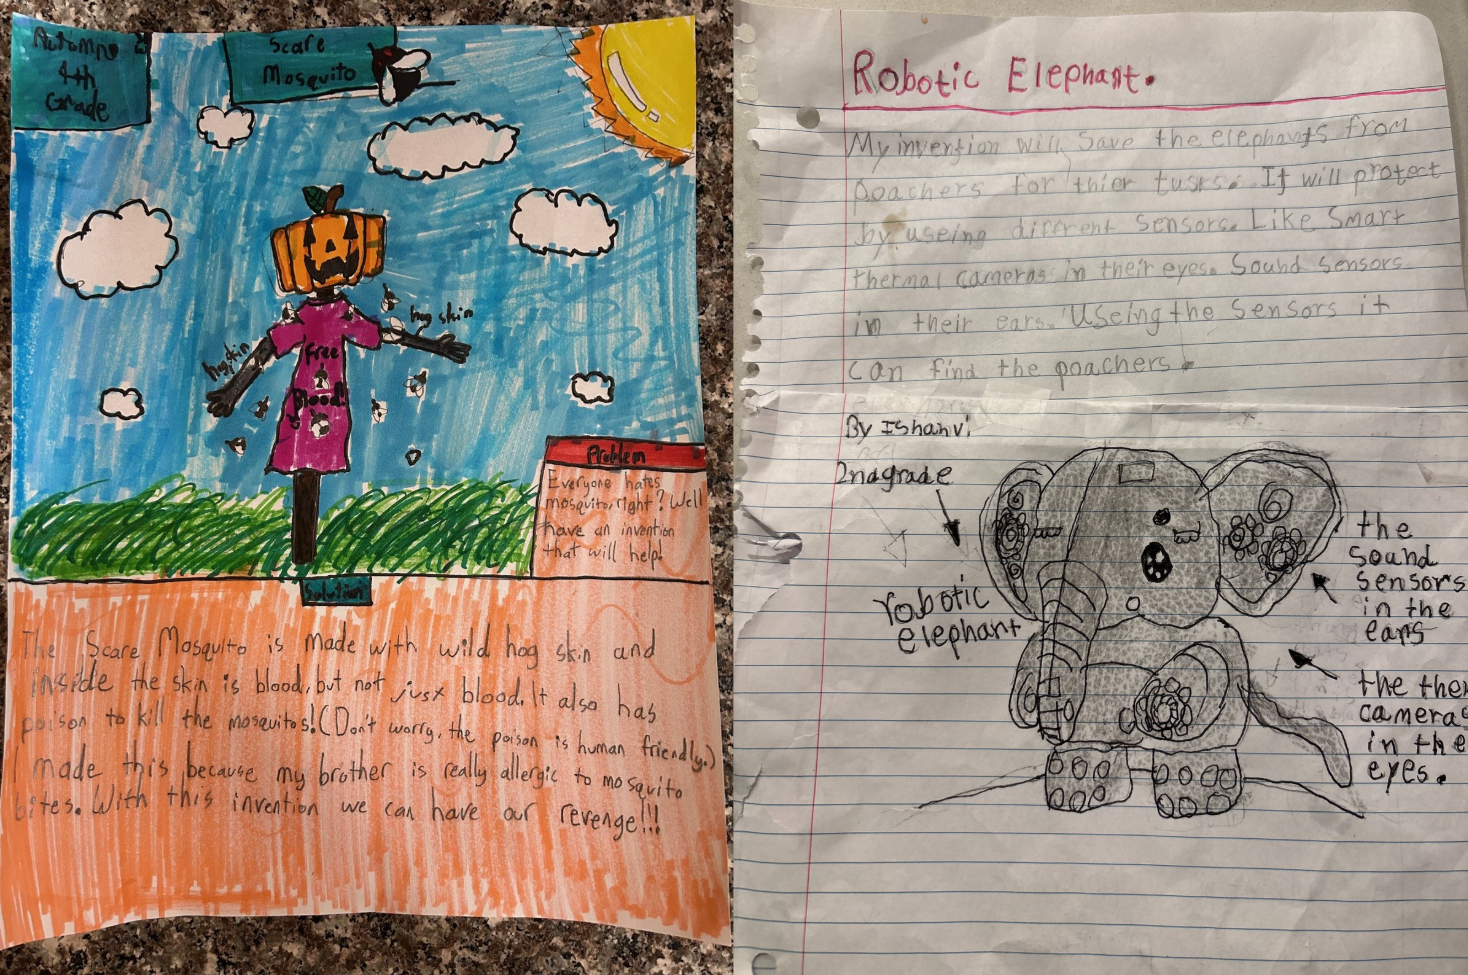 Autompe
4th
Grade
Scare
Mosquito
hog skin
hog skin
Free
Blood!
Problem
Everyone hates
mosquito, right? Well I
have an invention
that will help!
Solution
The Scare Mosquito is made with wild hog skin and
inside the skin is blood, but not just blood. It also has
poison to kill the mosquitos! (Don't worry, the poison is human friendly.)
I made this because my brother is really allergic to mosquito
bites. With this invention we can have our revenge!!!
Robotic Elephant.
My invention will save the elephants from
poachers for thier tusks. It will protect
by useing different sensors. Like Smart
thermal cameras in their eyes. Sound sensors
in their ears. Useing the sensors it
can find the poachers.
By Ishanvi
2nd grade
robotic
elephant
the
sound
sensors
in the
ears
the ther
cameras
in the
eyes.